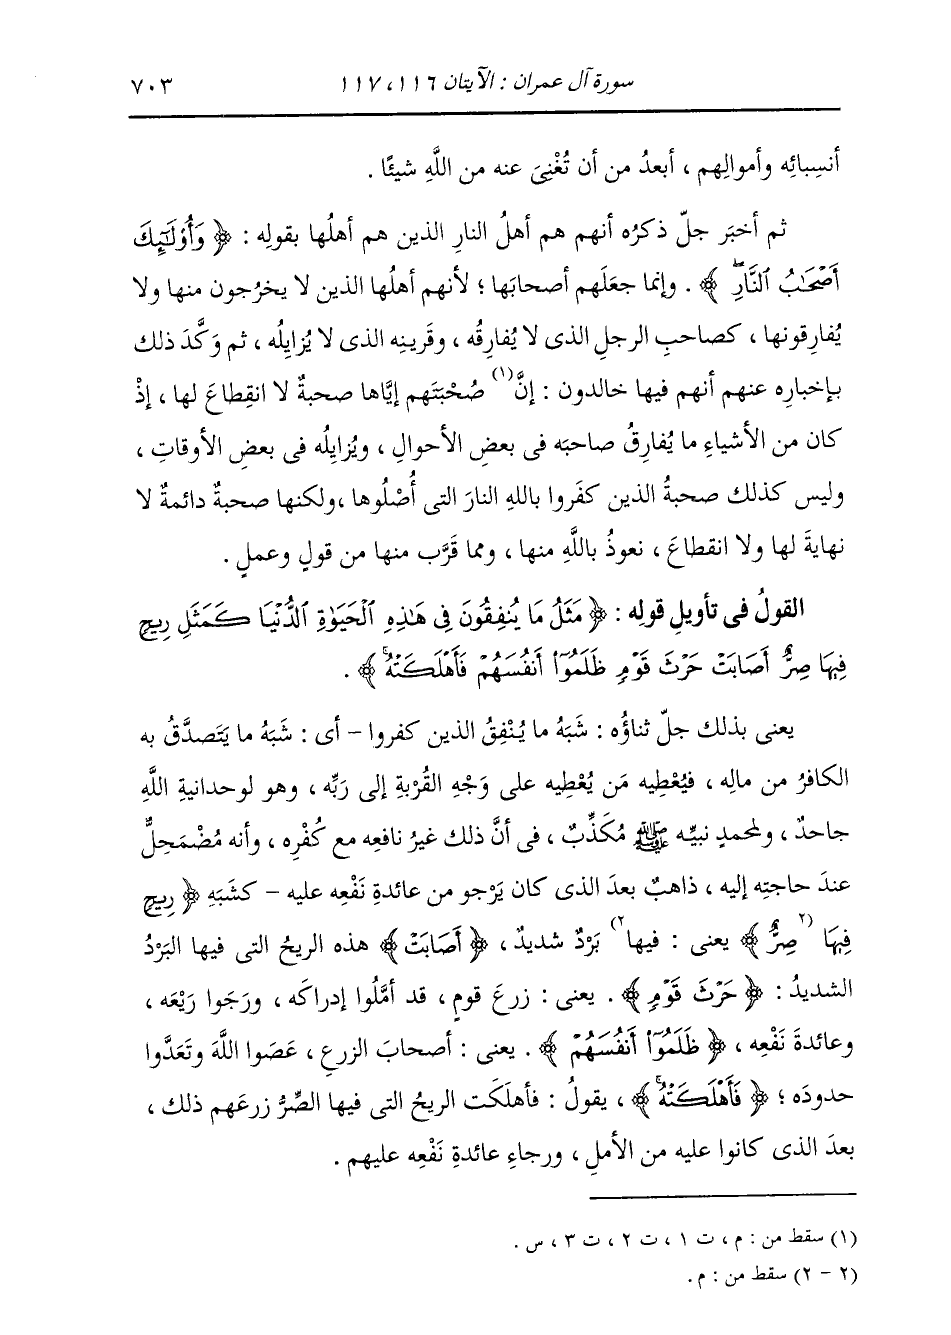 سورة آل عمران : الآيتان ١١٦ ، ١١٧ ٧٠٣
أنسِبائِه وأموالِهم ، أبعدُ من أن تُغْنِىَ عنه من اللَّهِ شيئًا .
ثم أخبَر جلّ ذكرُه أنهم هم أهلُ النارِ الذين هم أهلُها بقولِه : ﴿ وَأُوْلَٰٓئِكَ
أَصْحَٰبُ ٱلنَّارِۖ ﴾ . وإنما جعَلَهم أصحابَها ؛ لأنهم أهلُها الذين لا يخرُجون منها ولا
يُفارِقونها ، كصاحبِ الرجلِ الذى لا يُفارِقُه ، وقَرينِه الذى لا يُزايِلُه ، ثم وَكَّدَ ذلك
بإخبارِه عنهم أنهم فيها خالدون : إنَّ(١) صُحْبَتَهم إيَّاها صحبةٌ لا انقِطاعَ لها ، إذْ
كان من الأشياءِ ما يُفارِقُ صاحبَه فى بعضِ الأحوالِ ، ويُزايِلُه فى بعضِ الأوقاتِ ،
وليس كذلك صحبةُ الذين كفَروا باللهِ النارَ التى أُصْلُوها ،ولكنها صحبةٌ دائمةٌ لا
نهايةَ لها ولا انقطاعَ ، نعوذُ باللَّهِ منها ، ومما قَرَّب منها من قولٍ وعملٍ .
القولُ فى تأويلِ قولِه : ﴿ مَثَلُ مَا يُنفِقُونَ فِى هَٰذِهِ ٱلْحَيَوٰةِ ٱلدُّنْيَا كَمَثَلِ رِيحٍ
فِيهَا صِرٌّ أَصَابَتْ حَرْثَ قَوْمٍ ظَلَمُوٓا۟ أَنفُسَهُمْ فَأَهْلَكَتْهُ ﴾ .
يعنى بذلك جلّ ثناؤُه : شَبَهُ ما يُنْفِقُ الذين كفروا – أى : شَبَهُ ما يَتَصدَّقُ به
الكافرُ من مالِه ، فيُعْطِيه مَن يُعْطِيه على وَجْهِ القُرْبةِ إلى رَبِّه ، وهو لوحدانيةِ اللَّهِ
جاحدٌ ، ولمحمدٍ نبيِّه ﷺ مُكَذِّبٌ ، فى أنَّ ذلك غيرُ نافعِه مع كُفْرِه ، وأنه مُضْمَحِلٌّ
عندَ حاجتِه إليه ، ذاهبٌ بعدَ الذى كان يَرْجو من عائدةِ نَفْعِه عليه – كشَبَهِ ﴿ رِيحٍ
فِيهَا (٢ صِرٌّ ﴾ يعنى : فيها٢) بَرْدٌ شديدٌ ، ﴿ أَصَابَتْ ﴾ هذه الريحُ التى فيها البَرْدُ
الشديدُ : ﴿ حَرْثَ قَوْمٍ ﴾ . يعنى : زرعَ قومٍ ، قد أمَّلُوا إدراكَه ، ورَجَوا رَيْعَه ،
وعائدةَ نَفْعِه ، ﴿ ظَلَمُوٓا۟ أَنفُسَهُمْ ﴾ . يعنى : أصحابَ الزرعِ ، عَصَوا اللَّهَ وتَعَدَّوا
حدودَه ؛ ﴿ فَأَهْلَكَتْهُ ﴾ ، يقولُ : فأهلَكَت الريحُ التى فيها الصِّرُّ زرعَهم ذلك ،
بعدَ الذى كانوا عليه من الأملِ ، ورجاءِ عائدةِ نَفْعِه عليهم .
(١) سقط من : م ، ت ١ ، ت ٢ ، ت ٣ ، س .
(٢ – ٢) سقط من : م .